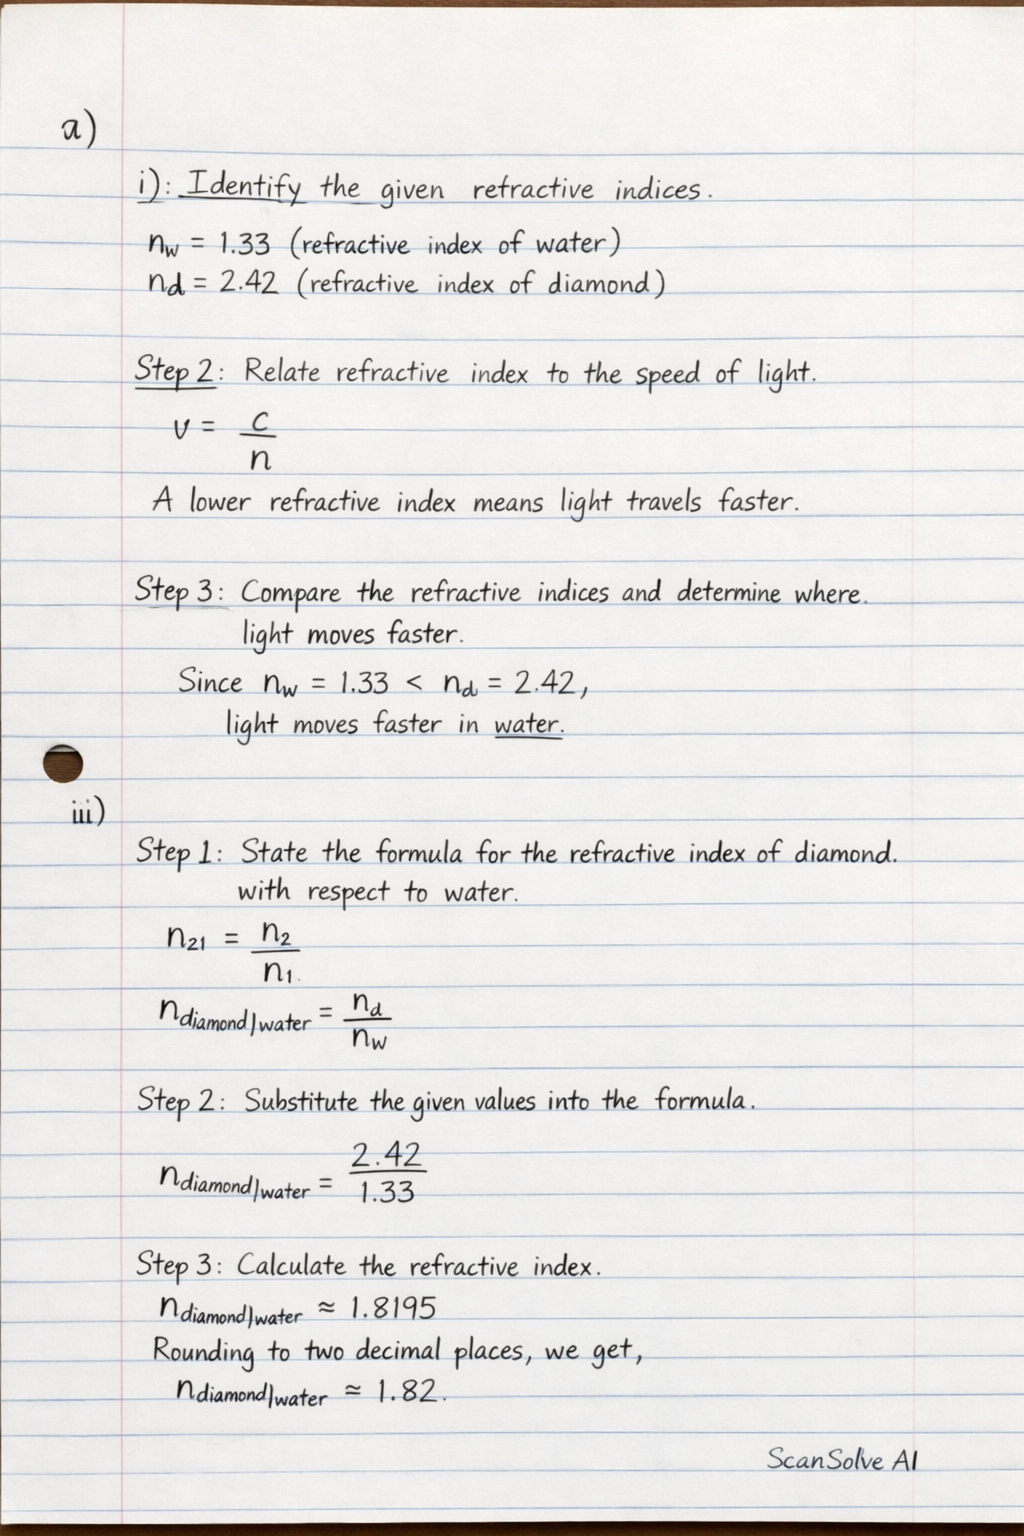 a)
i): Identify the given refractive indices.
n_w = 1.33 (refractive index of water)
n_d = 2.42 (refractive index of diamond)
Step 2: Relate refractive index to the speed of light.
v = c/n
A lower refractive index means light travels faster.
Step 3: Compare the refractive indices and determine where.
light moves faster.
Since n_w = 1.33 < n_d = 2.42,
light moves faster in water.
iii)
Step 1: State the formula for the refractive index of diamond.
with respect to water.
n_21 = n_2/n_1.
n_diamond|water = n_d/n_w
Step 2: Substitute the given values into the formula.
n_diamond|water = 2.42/1.33
Step 3: Calculate the refractive index.
n_diamond|water ≈ 1.8195
Rounding to two decimal places, we get,
n_diamond|water ≈ 1.82.
ScanSolve AI